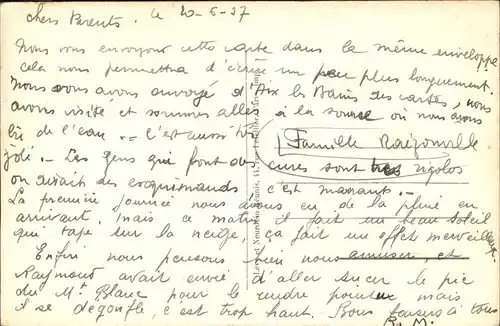 chers Parents. Le 20-6-37
Nous vous envoyons cette carte dans la même enveloppe
cela nous permettra d'écrire un peu plus longuement.
Nous vous avons envoyé d'Aix les Bains des cartes, nous
avons visité et sommes allés à la source où nous avons
bu de l'eau.. c'est aussi très
Famille
joli. Les gens qui font des cures sont très rigolos
on dirait des esquimauds c'est marrant.-
La première journée nous avons eu de la pluie en
arrivant, mais ce matin il fait un beau soleil
qui tape sur la neige, ça fait un effet merveilleux.
Enfin nous pensons bien nous amuser, et
Raymond avait envie d'aller sucer le pic
du Mt Blanc pour le rendre pointu mais
il se dégonfle, c'est trop haut. Bons baisers à tous
R. M.